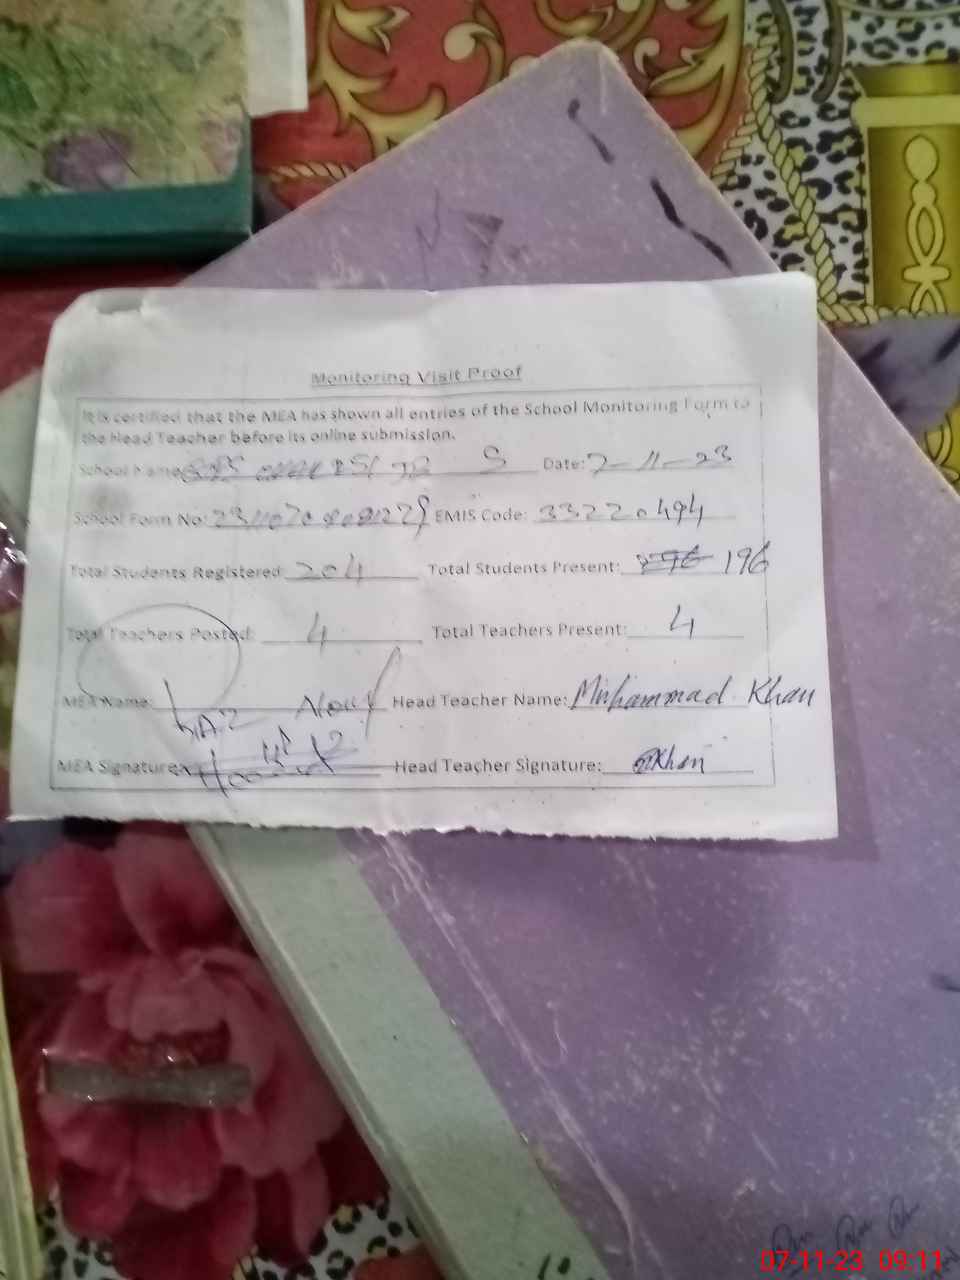 Monitoring Visit Proof
It is certified that the MEA has shown all entries of the School Monitoring Form to
the Head Teacher before its online submission.
School Name: S Date: 7-11-23
School Form No: EMIS Code: 33220494
Total Students Registered: 204 Total Students Present: 196
Total Teachers Posted: 4 Total Teachers Present: 4
MEA Name: Head Teacher Name: Muhammad Khan
MEA Signature: Head Teacher Signature: Khan
07-11-23 09:11